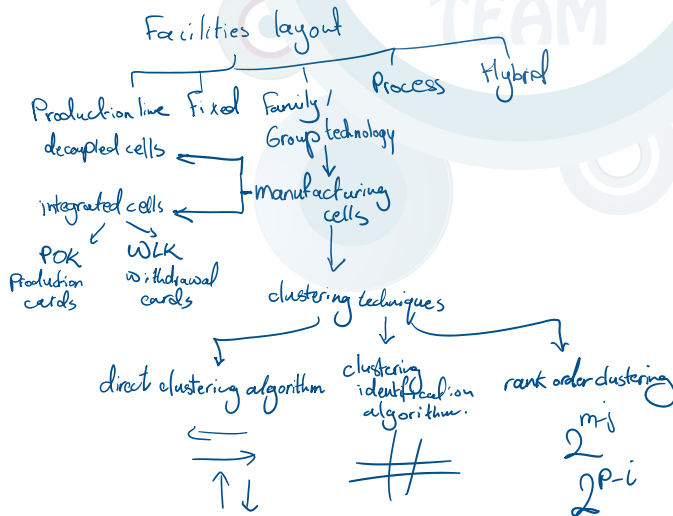 TEAM
Facilities layout
Production line
Fixed
Family /
Group technology
Process
Hybrid
decoupled cells
manufacturing
cells
integrated cells
POK
Production
cards
WLK
withdrawal
cards
clustering techniques
direct clustering algorithm
clustering
identification
algorithm.
rank order clustering
2^m-j
2^p-i